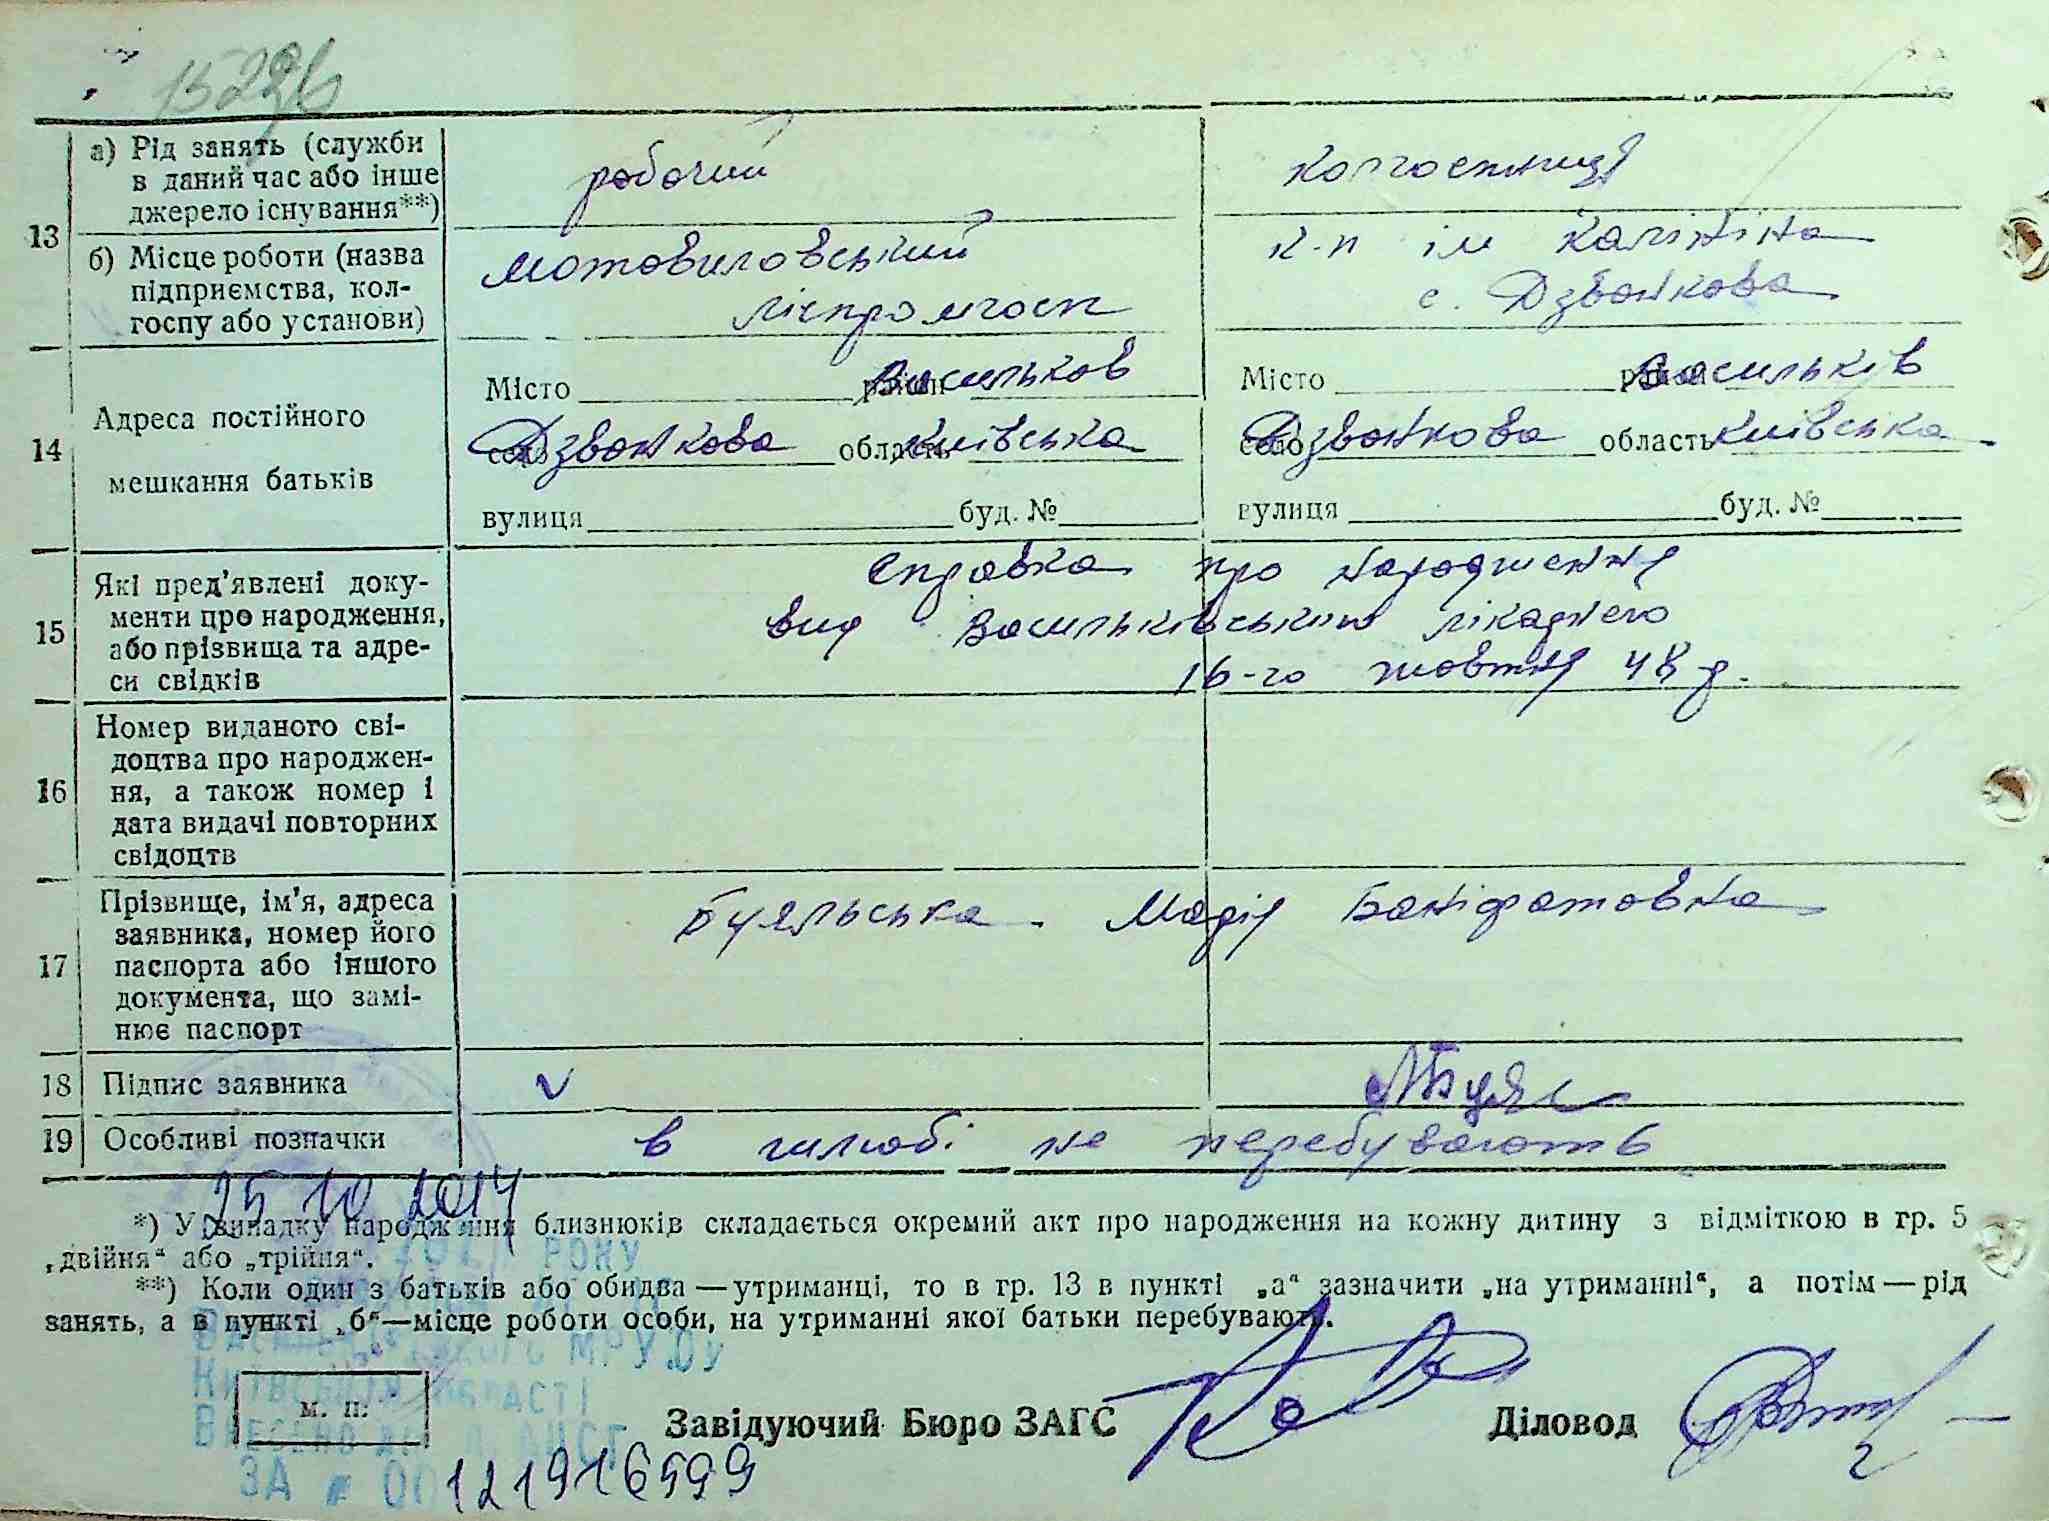 а) Рід занять (служби
в даний час або інше
джерело існування**)
робочий
колгоспниця
13
б) Місце роботи (назва
підприємства, кол-
госпу або установи)
мотовиловський
ліспромгосп
к-п ім Калініна
с. Дзвонкова
14
Адреса постійного
мешкання батьків
Місто район Васильков
село Дзвонкова область київська
вулиця буд. №
Місто район Васильків
село Дзвонкова область київська
вулиця буд. №
15
Які пред'явлені доку-
менти про народження,
або прізвища та адре-
си свідків
справка про народження
вид Васильківською лікарнею
16-го жовтня 48 р.
16
Номер виданого сві-
доцтва про народжен-
ня, а також номер і
дата видачі повторних
свідоцтв
17
Прізвище, ім'я, адреса
заявника, номер його
паспорта або іншого
документа, що замі-
нює паспорт
Буяльська Марія Боніфатовна
18 Підпис заявника
МБуял
19 Особливі позначки
в шлюбі не перебувають
25 10 2014
*) У випадку народження близнюків складається окремий акт про народження на кожну дитину з відміткою в гр. 5
„двійня“ або „трійня“.
РОКУ
**) Коли один з батьків або обидва — утриманці, то в гр. 13 в пункті „а“ зазначити „на утриманні“, а потім — рід
занять, а в пункті „б“—місце роботи особи, на утриманні якої батьки перебувають.
МРУЮ
Київській області
м. п.
Завідуючий Бюро ЗАГС
Діловод
ЗА № 00121916599